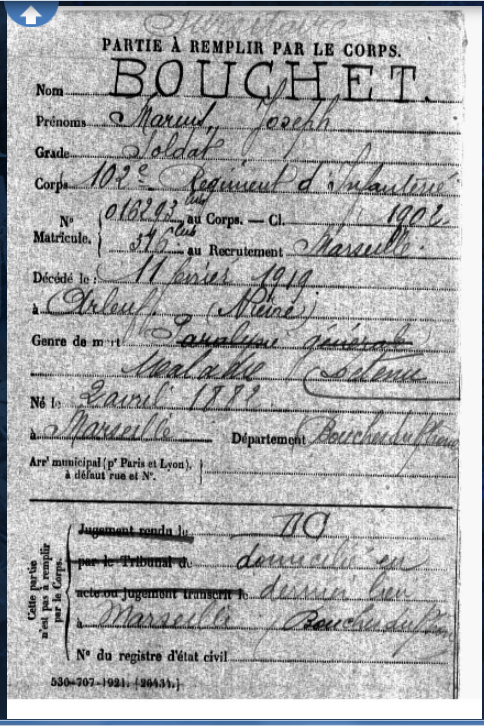 PARTIE À REMPLIR PAR LE CORPS.
Nom BOUCHET.
Prénoms Marius, Joseph
Grade Soldat
Corps 102e Régiment d'Infanterie
N° Matricule. 016293 bis au Corps. — Cl. 1902
au Recrutement Marseille.
Décédé le : 11 février 1919
à Arleuf (Nièvre)
Genre de mort Paralysie générale
Maladie Détenu
Né le 2 avril 188
à Marseille Département Bouches du Rhône
Arrt municipal (pr Paris et Lyon),
à défaut rue et N°.
Cette partie n'est pas à remplir par le Corps.
Jugement rendu le
par le Tribunal de domicilié en
acte ou jugement transcrit le dernier lieu
à Marseille Bouches du Rhône
N° du registre d'état civil
530-707-1921. [20434.]